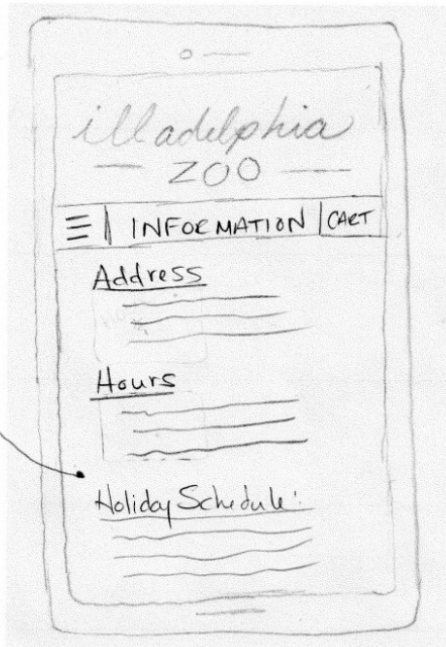 illadelphia
ZOO
INFORMATION CART
Address
Hours
Holiday Schedule: